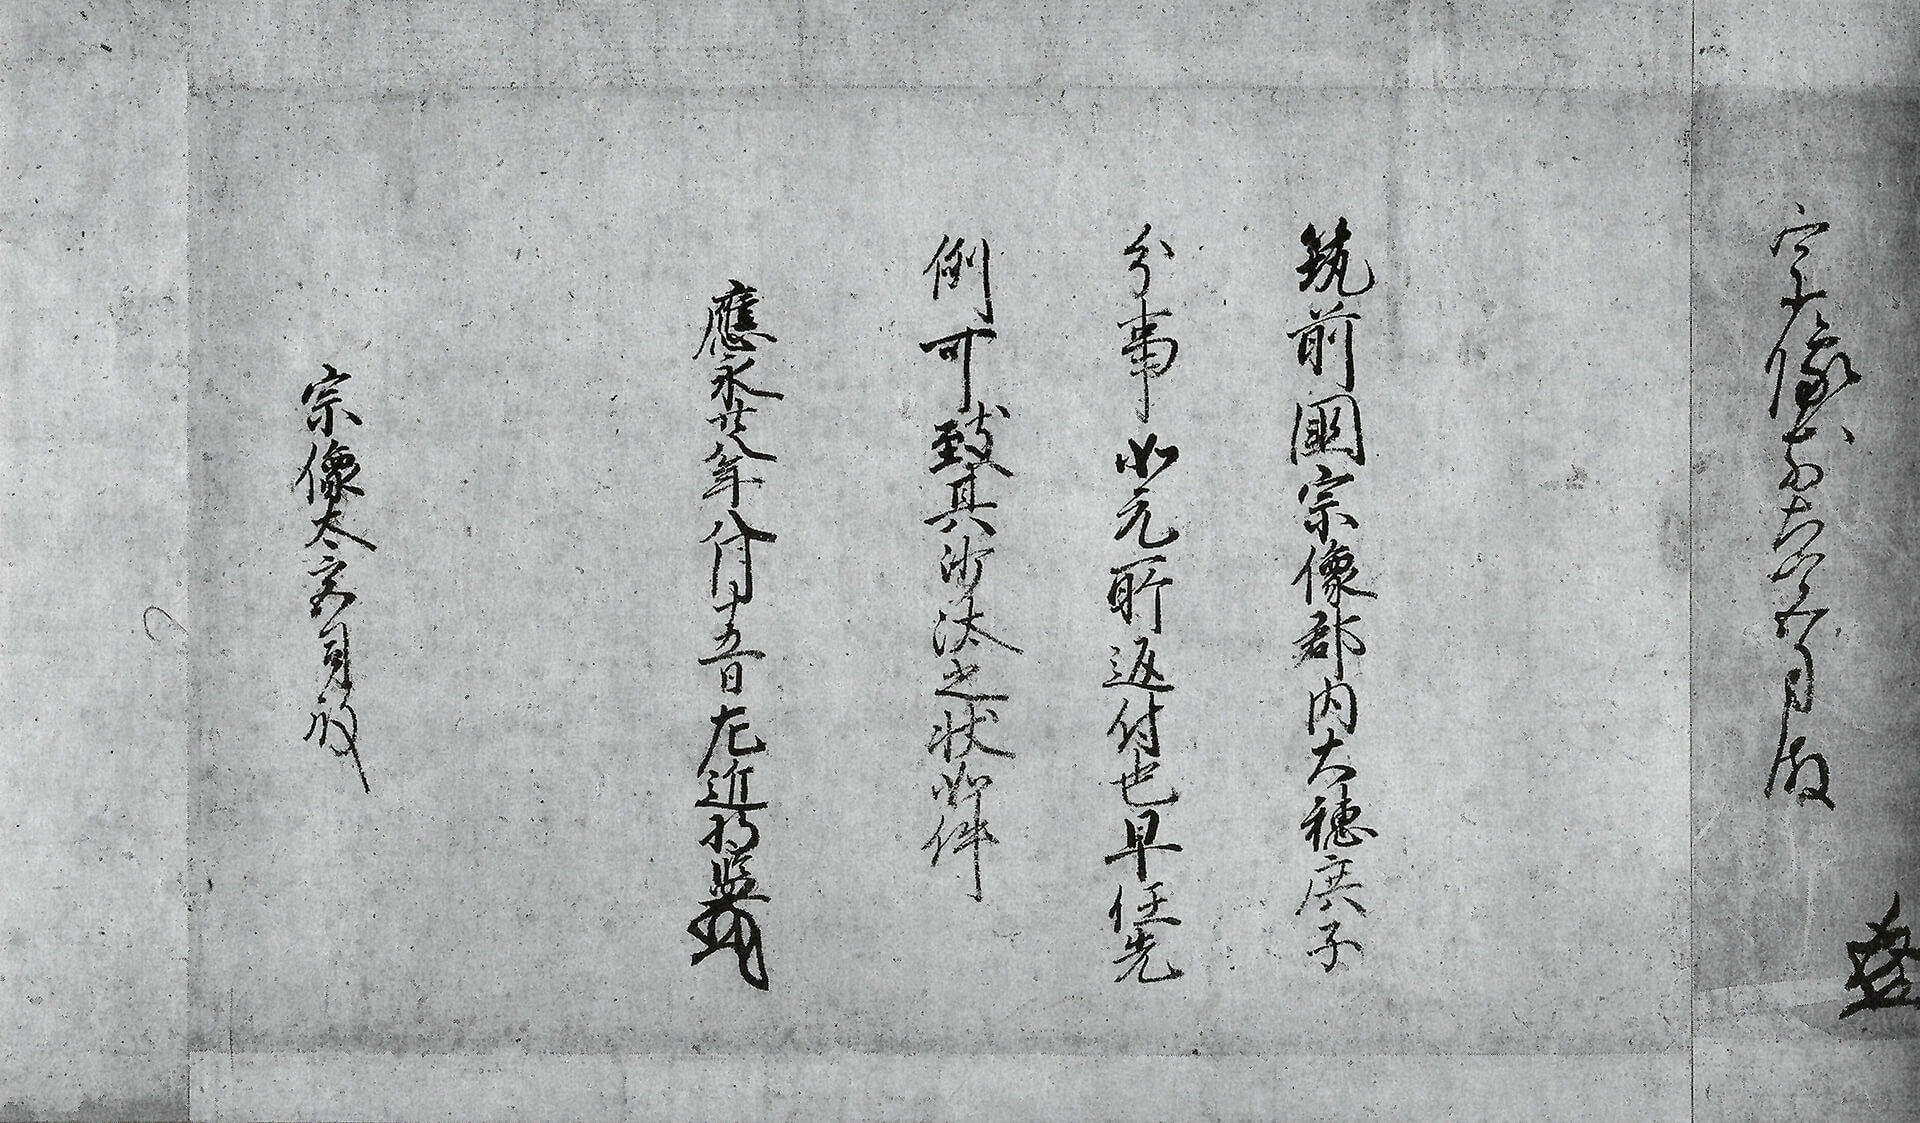 宗像前大宮司殿
筑前國宗像郡内大穂庶子
分事如元所返付也早任先
例可致其沙汰之状如件
應永廿八年八月十五日左近将監
宗像大宮司殿